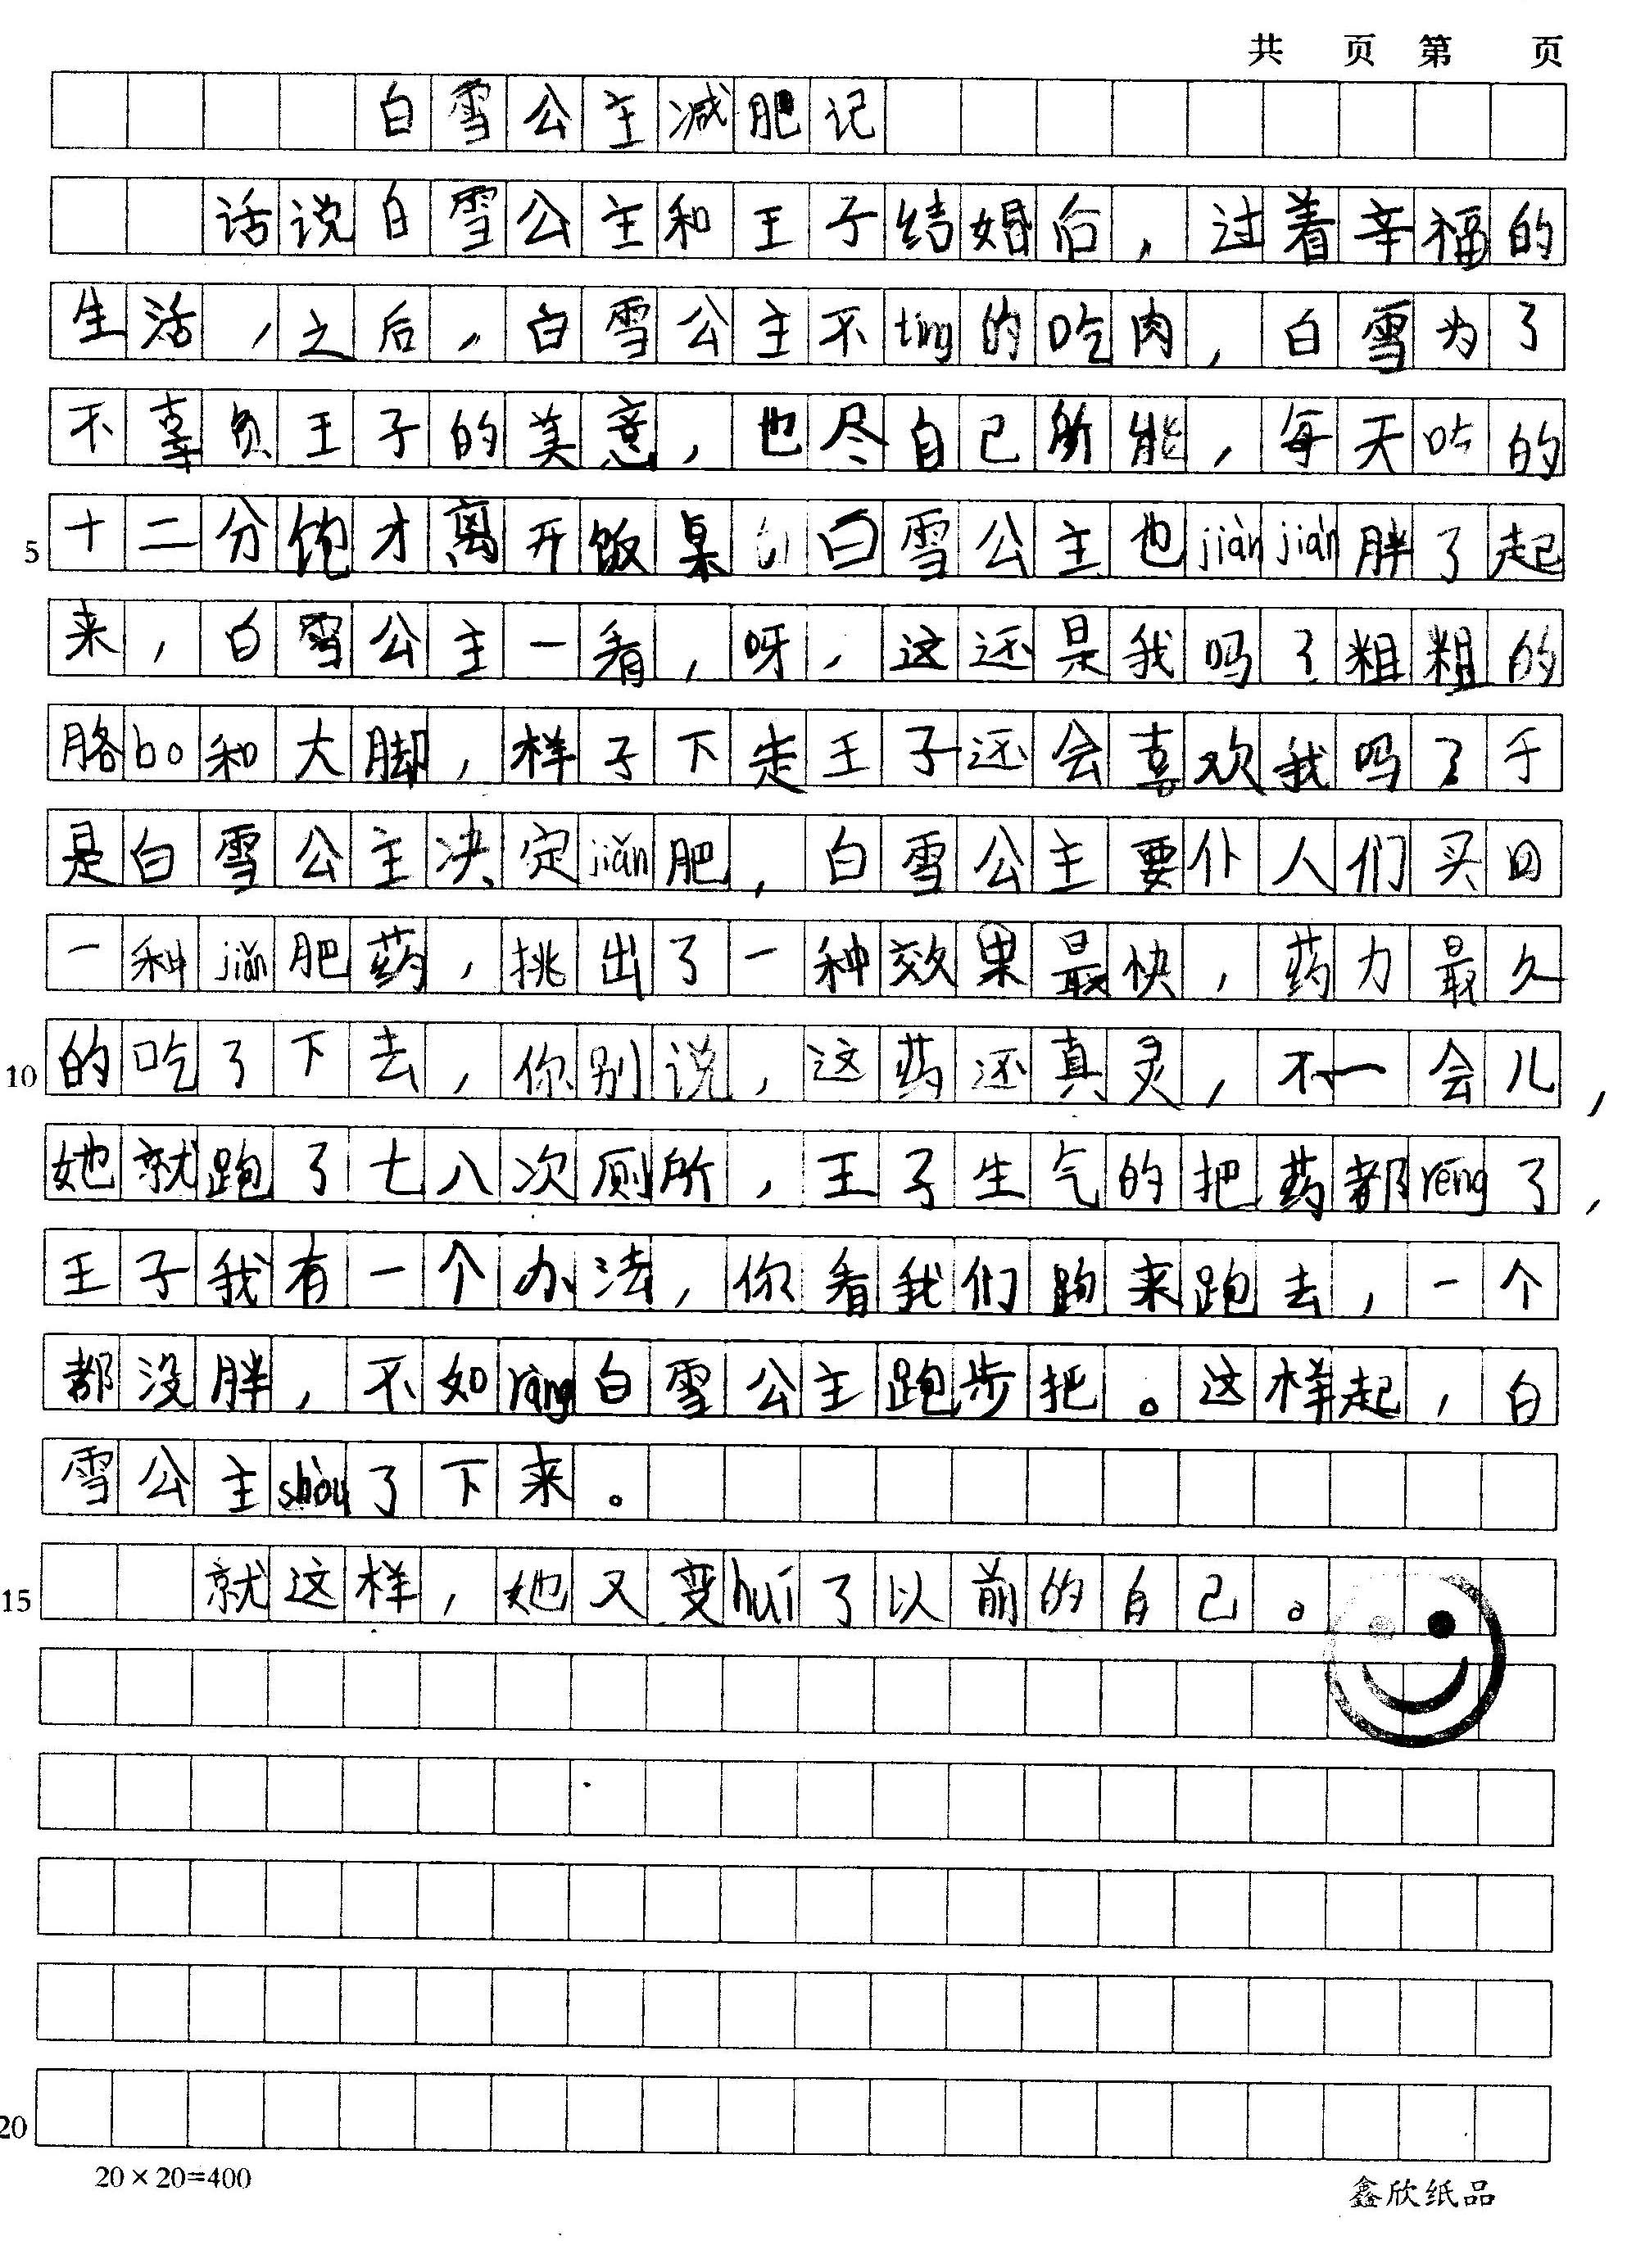 共 页 第 页
白雪公主减肥记
话说白雪公主和王子结婚后，过着辛福的
生活，之后，白雪公主不tíng的吃肉，白雪为了
不辜负王子的美意，也尽自己所能，每天吃的
5 十二分饱才离开饭桌 白雪公主也jiànjiàn胖了起
来，白雪公主一看，呀，这还是我吗？粗粗的
胳bo和大脚，样子下走王子还会喜欢我吗？于
是白雪公主决定jiǎn肥，白雪公主要仆人们买回
一种jiǎn肥药，挑出了一种效果最快，药力最久
10 的吃了下去，你别说，这药还真灵，不一会儿，
她就跑了七八次厕所，王子生气的把药都rēng了，
王子我有一个办法，你看我们跑来跑去，一个
都没胖，不如ràng白雪公主跑步把。这样起，白
雪公主shòu了下来。
15 就这样，她又变huí了以前的自己。
20
20×20=400 鑫欣纸品